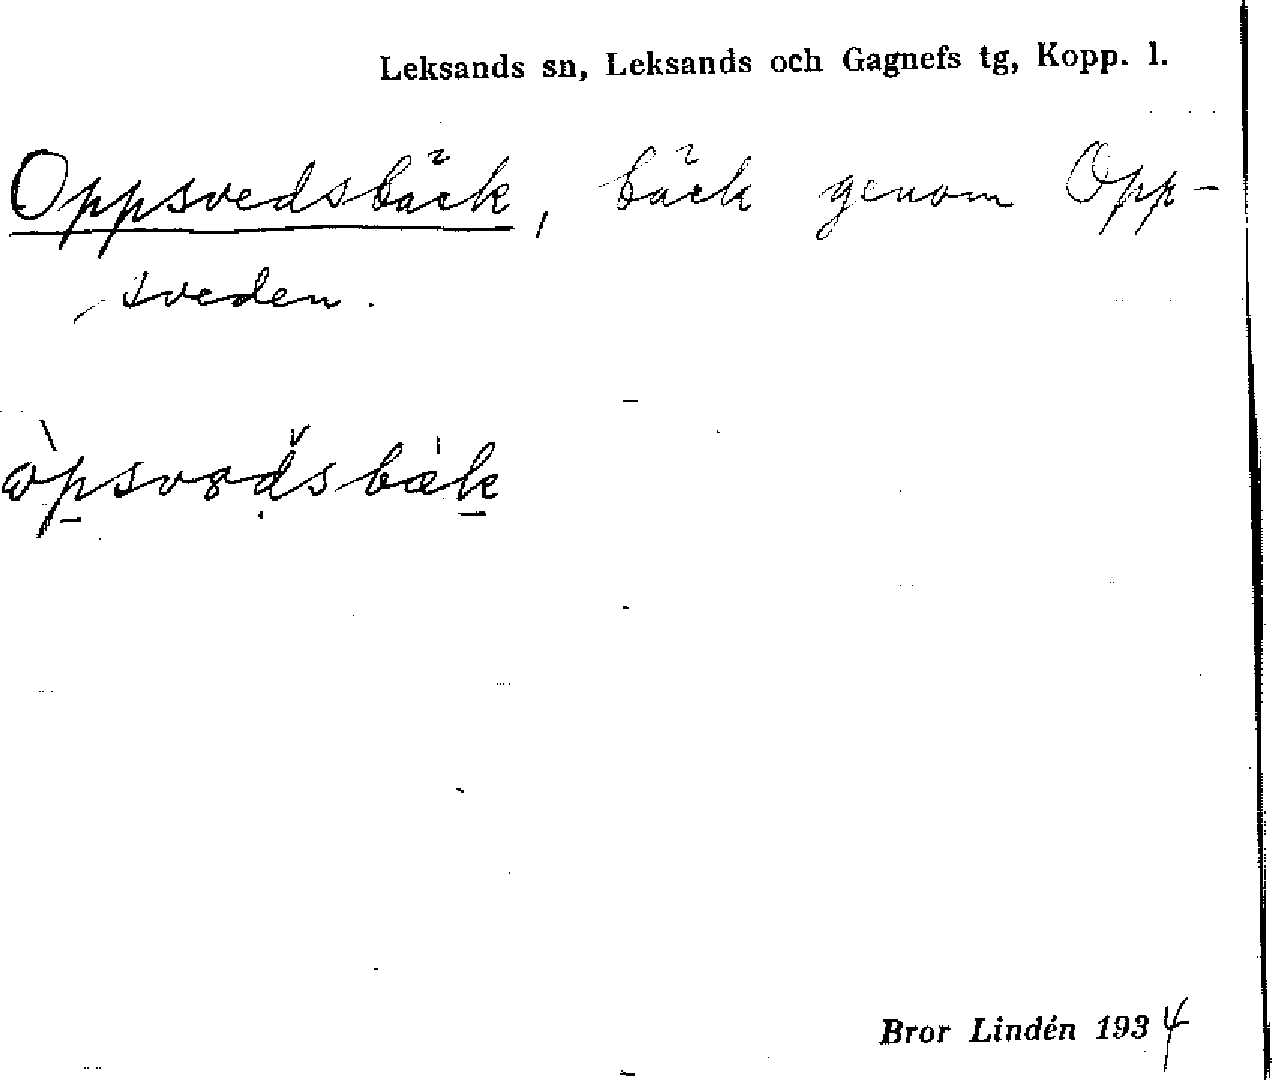 Leksands sn, Leksands och Gagnefs tg, Kopp. l.
Oppsvedsbäck, bäck genom Opp-
sveden.
Bror Lindén 1934